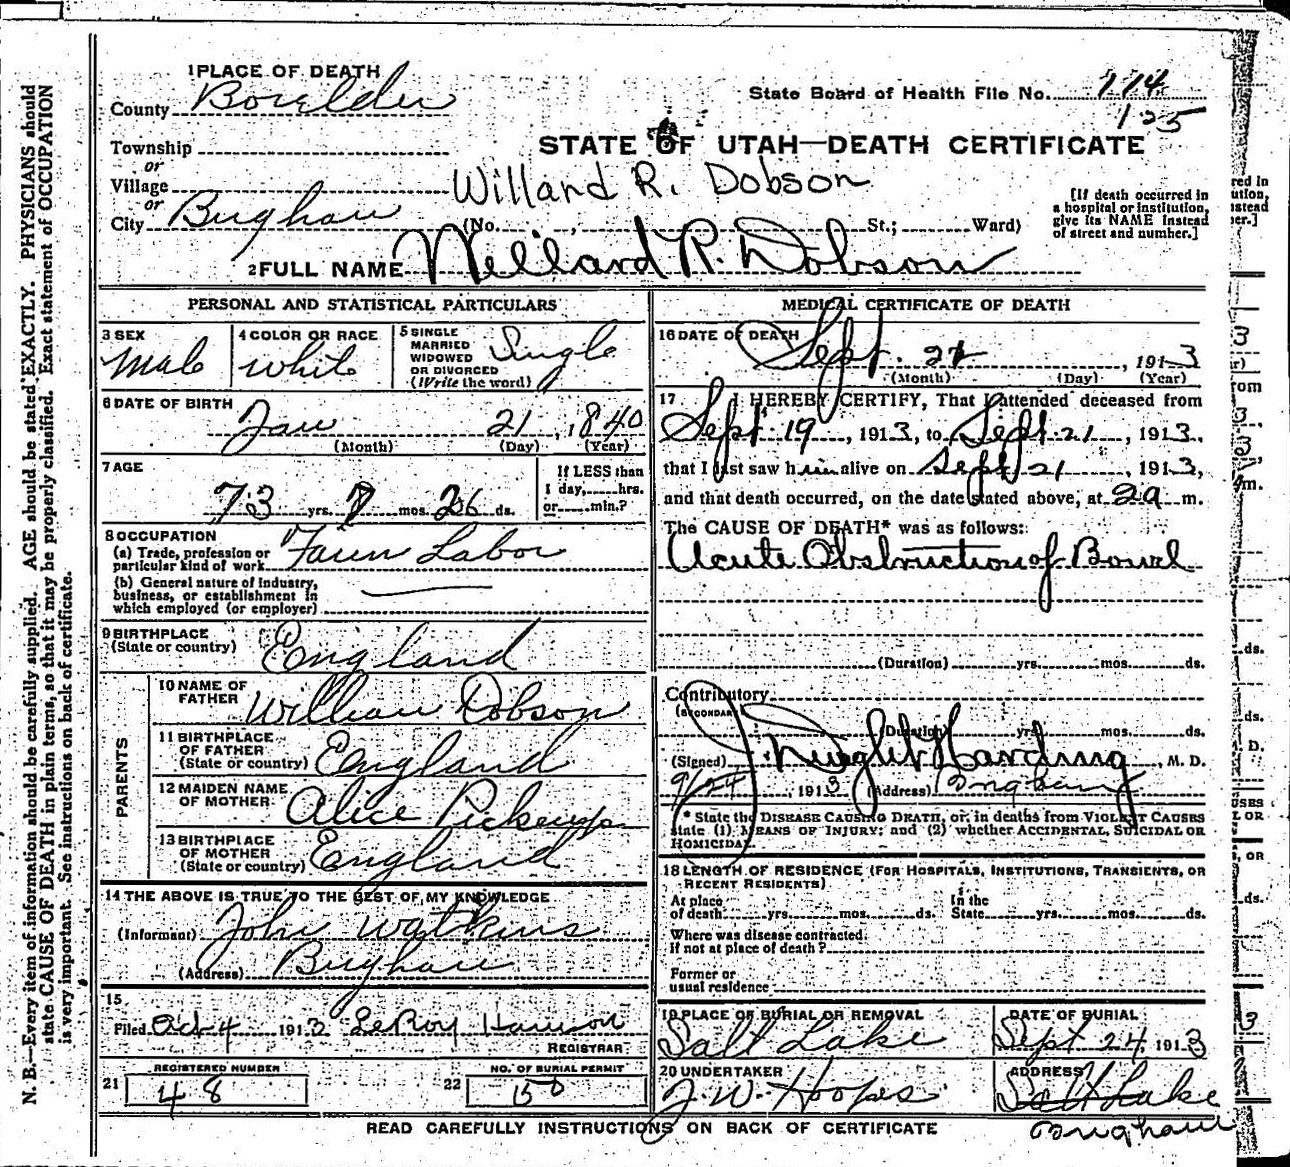 1 PLACE OF DEATH
County Boxelder
State Board of Health File No. 114
125
Township
or
STATE OF UTAH—DEATH CERTIFICATE
Village
or
Willard R. Dobson
City Brigham (No. , St.; Ward)
[If death occurred in
a hospital or institution,
give its NAME instead
of street and number.]
2 FULL NAME Willard R. Dobson
PERSONAL AND STATISTICAL PARTICULARS
3 SEX
Male
4 COLOR OR RACE
White
5 SINGLE
MARRIED
WIDOWED
OR DIVORCED
(Write the word)
Single
6 DATE OF BIRTH
Jan 21, 1840
(Month) (Day) (Year)
7 AGE
73 yrs. mos. 26 ds.
If LESS than
1 day, hrs.
or min.?
8 OCCUPATION
(a) Trade, profession or
particular kind of work
Farm Labor
(b) General nature of industry,
business, or establishment in
which employed (or employer)
9 BIRTHPLACE
(State or country)
England
PARENTS
10 NAME OF
FATHER
William Dobson
11 BIRTHPLACE
OF FATHER
(State or country)
England
12 MAIDEN NAME
OF MOTHER
Alice Pickup
13 BIRTHPLACE
OF MOTHER
(State or country)
England
14 THE ABOVE IS TRUE TO THE BEST OF MY KNOWLEDGE
(Informant) John Watkins
(Address) Brigham
15
Filed Oct 4 1913 LeRoy Harrison
REGISTRAR
REGISTERED NUMBER
21 48
NO. OF BURIAL PERMIT
22 150
MEDICAL CERTIFICATE OF DEATH
16 DATE OF DEATH
Sept. , 1913
(Month) (Day) (Year)
17 I HEREBY CERTIFY, That I attended deceased from
Sept. 19, 1913, to Sept. 21, 1913,
that I last saw him alive on Sept 21, 1913,
and that death occurred, on the date stated above, at m.
The CAUSE OF DEATH* was as follows:
Acute Obstruction of Bowel
(Duration) yrs. mos. ds.
Contributory
(SECONDARY)
(Duration) yrs. mos. ds.
(Signed) Harding, M. D.
9/24, 1913 (Address) Brigham
* State the DISEASE CAUSING DEATH, or, in deaths from VIOLENT CAUSES
state (1) MEANS OF INJURY; and (2) whether ACCIDENTAL, SUICIDAL OR
HOMICIDAL.
18 LENGTH OF RESIDENCE (FOR HOSPITALS, INSTITUTIONS, TRANSIENTS, OR
RECENT RESIDENTS)
At place
of death yrs. mos. ds.
In the
State yrs. mos. ds.
Where was disease contracted
if not at place of death?
Former or
usual residence
19 PLACE OF BURIAL OR REMOVAL
Salt Lake
DATE OF BURIAL
Sept 24, 1913
20 UNDERTAKER
J. W. Hoopes
ADDRESS
Salt Lake
Brigham
READ CAREFULLY INSTRUCTIONS ON BACK OF CERTIFICATE
N. B.—Every item of information should be carefully supplied. AGE should be stated EXACTLY. PHYSICIANS should
state CAUSE OF DEATH in plain terms, so that it may be properly classified. Exact statement of OCCUPATION
is very important. See instructions on back of certificate.